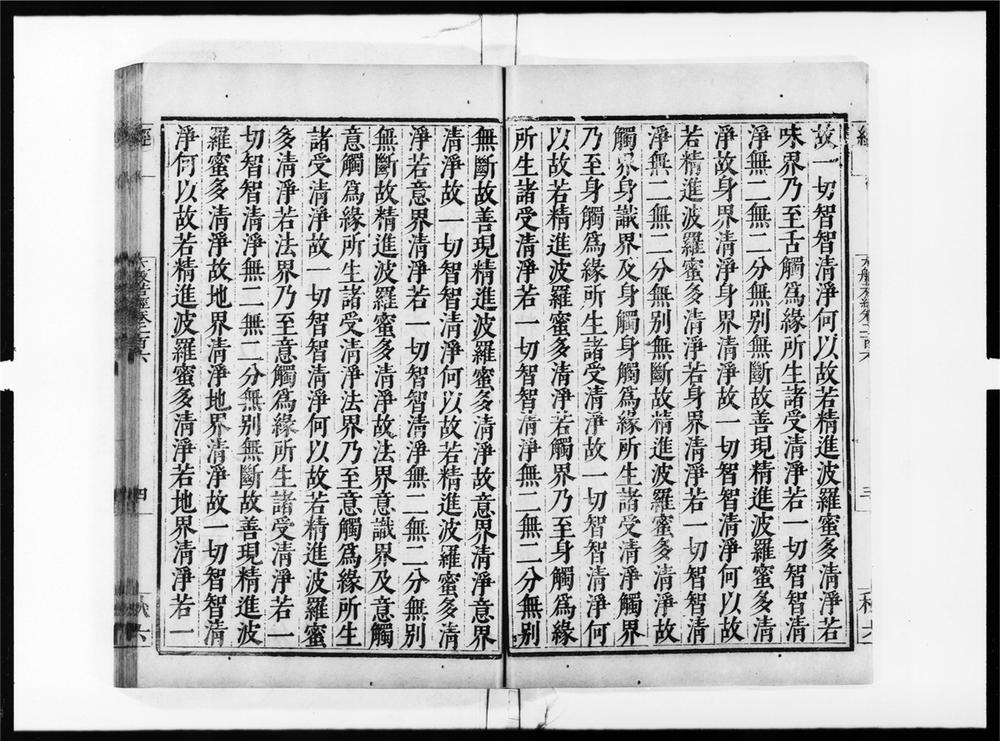 故一切智智清淨何以故若精進波羅蜜多清淨若
味界乃至舌觸爲緣所生諸受清淨若一切智智清
淨無二無二分無别無斷故善現精進波羅蜜多清
淨故身界清淨身界清淨故一切智智清淨何以故
若精進波羅蜜多清淨若身界清淨若一切智智清
淨無二無二分無别無斷故精進波羅蜜多清淨故
觸界身識界及身觸身觸爲緣所生諸受清淨觸界
乃至身觸爲緣所生諸受清淨故一切智智清淨何
以故若精進波羅蜜多清淨若觸界乃至身觸爲緣
所生諸受清淨若一切智智清淨無二無二分無别
無斷故善現精進波羅蜜多清淨故意界清淨意界
清淨故一切智智清淨何以故若精進波羅蜜多清
淨若意界清淨若一切智智清淨無二無二分無别
無斷故精進波羅蜜多清淨故法界意識界及意觸
意觸爲緣所生諸受清淨法界乃至意觸爲緣所生
諸受清淨故一切智智清淨何以故若精進波羅蜜
多清淨若法界乃至意觸爲緣所生諸受清淨若一
切智智清淨無二無二分無别無斷故善現精進波
羅蜜多清淨故地界清淨地界清淨故一切智智清
淨何以故若精進波羅蜜多清淨若地界清淨若一
經 大般若經卷二百六 四